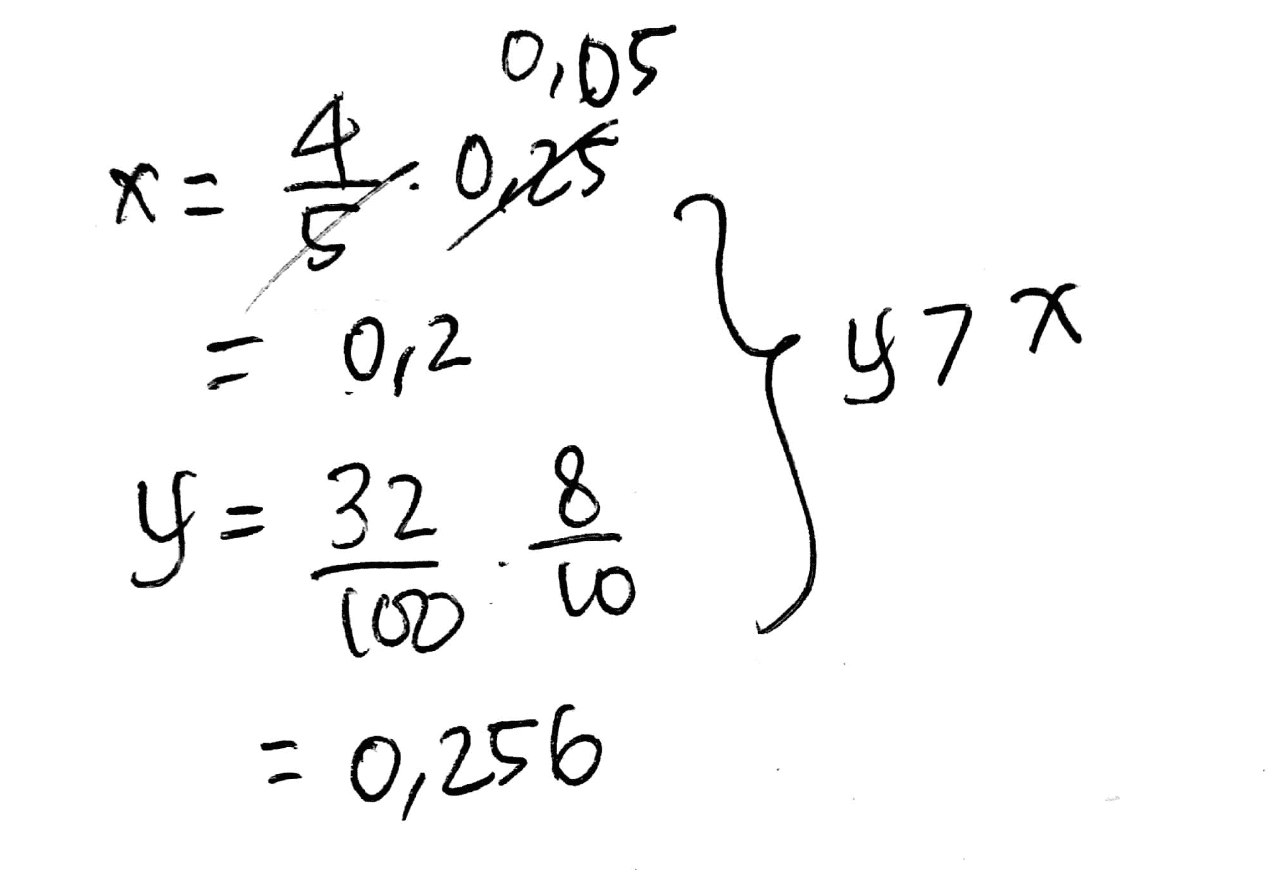 0,05
x = 4/5 · 0,25
= 0,2
y = 32/100 · 8/10
= 0,256
y > x